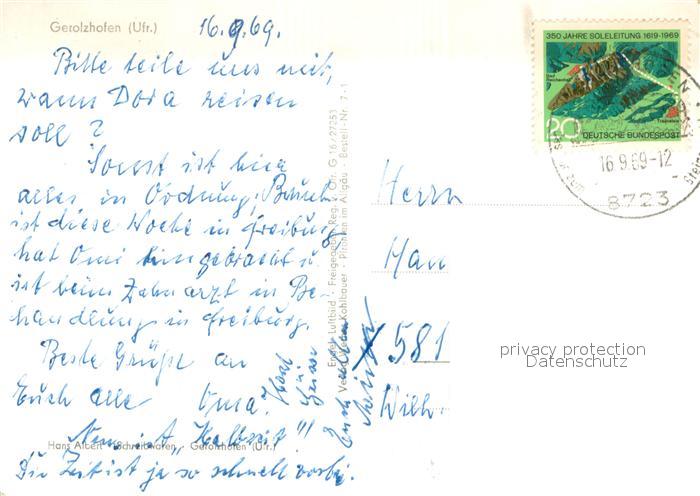 Gerolzhofen (Ufr.)
16.9.69.
Bitte teile uns mit,
wann Dora reisen
soll?
Sonst ist hier
alles in Ordnung,
ist diese Woche in Freiburg
hat Omi hingebracht u.
ist beim Zahnarzt in Be-
handlung in Freiburg.
Beste Grüße an
Euch alle Oma.
Nun ist „Halbzeit"!!
Die Zeit ist ja so schnell vorbei.
Hans Albert · Schreibwaren · Gerolzhofen (Ufr.)
Luftbild · Freigegeben Reg. v. Ofr. G 16/27253
Kohlbauer · Pfronten im Allgäu · Bestell-Nr. 7-1
350 JAHRE SOLELEITUNG 1619-1969
Bad Reichenhall
Traunstein
20 DEUTSCHE BUNDESPOST
16.9.69-12
8723
Herrn
Han
581
Wilh
privacy protection
Datenschutz